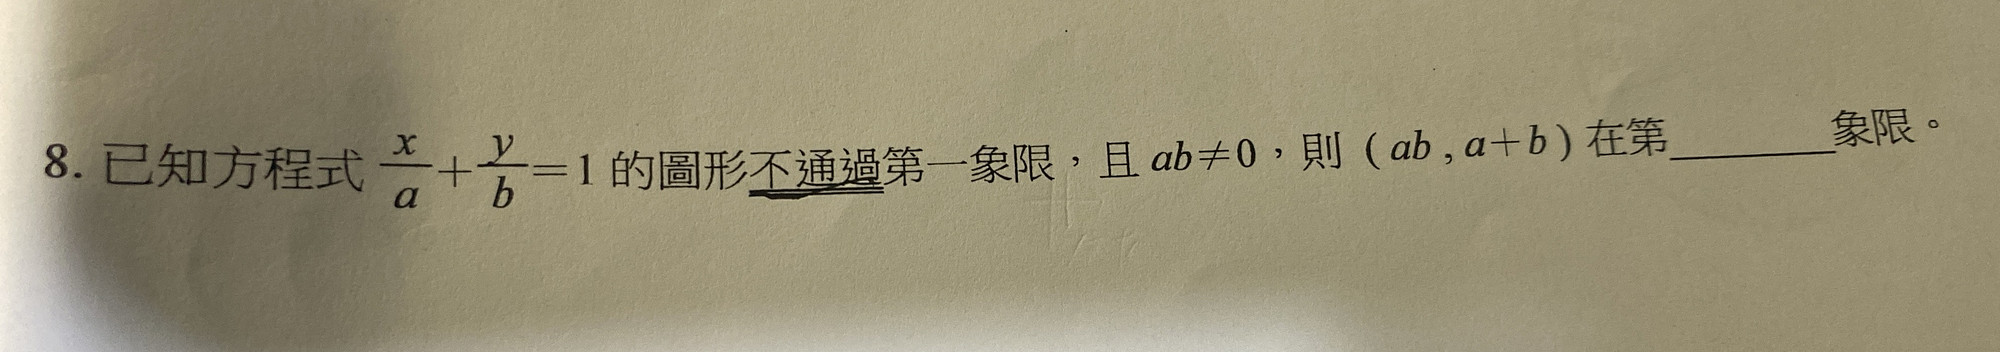 8. 已知方程式 x/a + y/b = 1 的圖形不通過第一象限，且 ab≠0，則 ( ab , a+b ) 在第________象限。